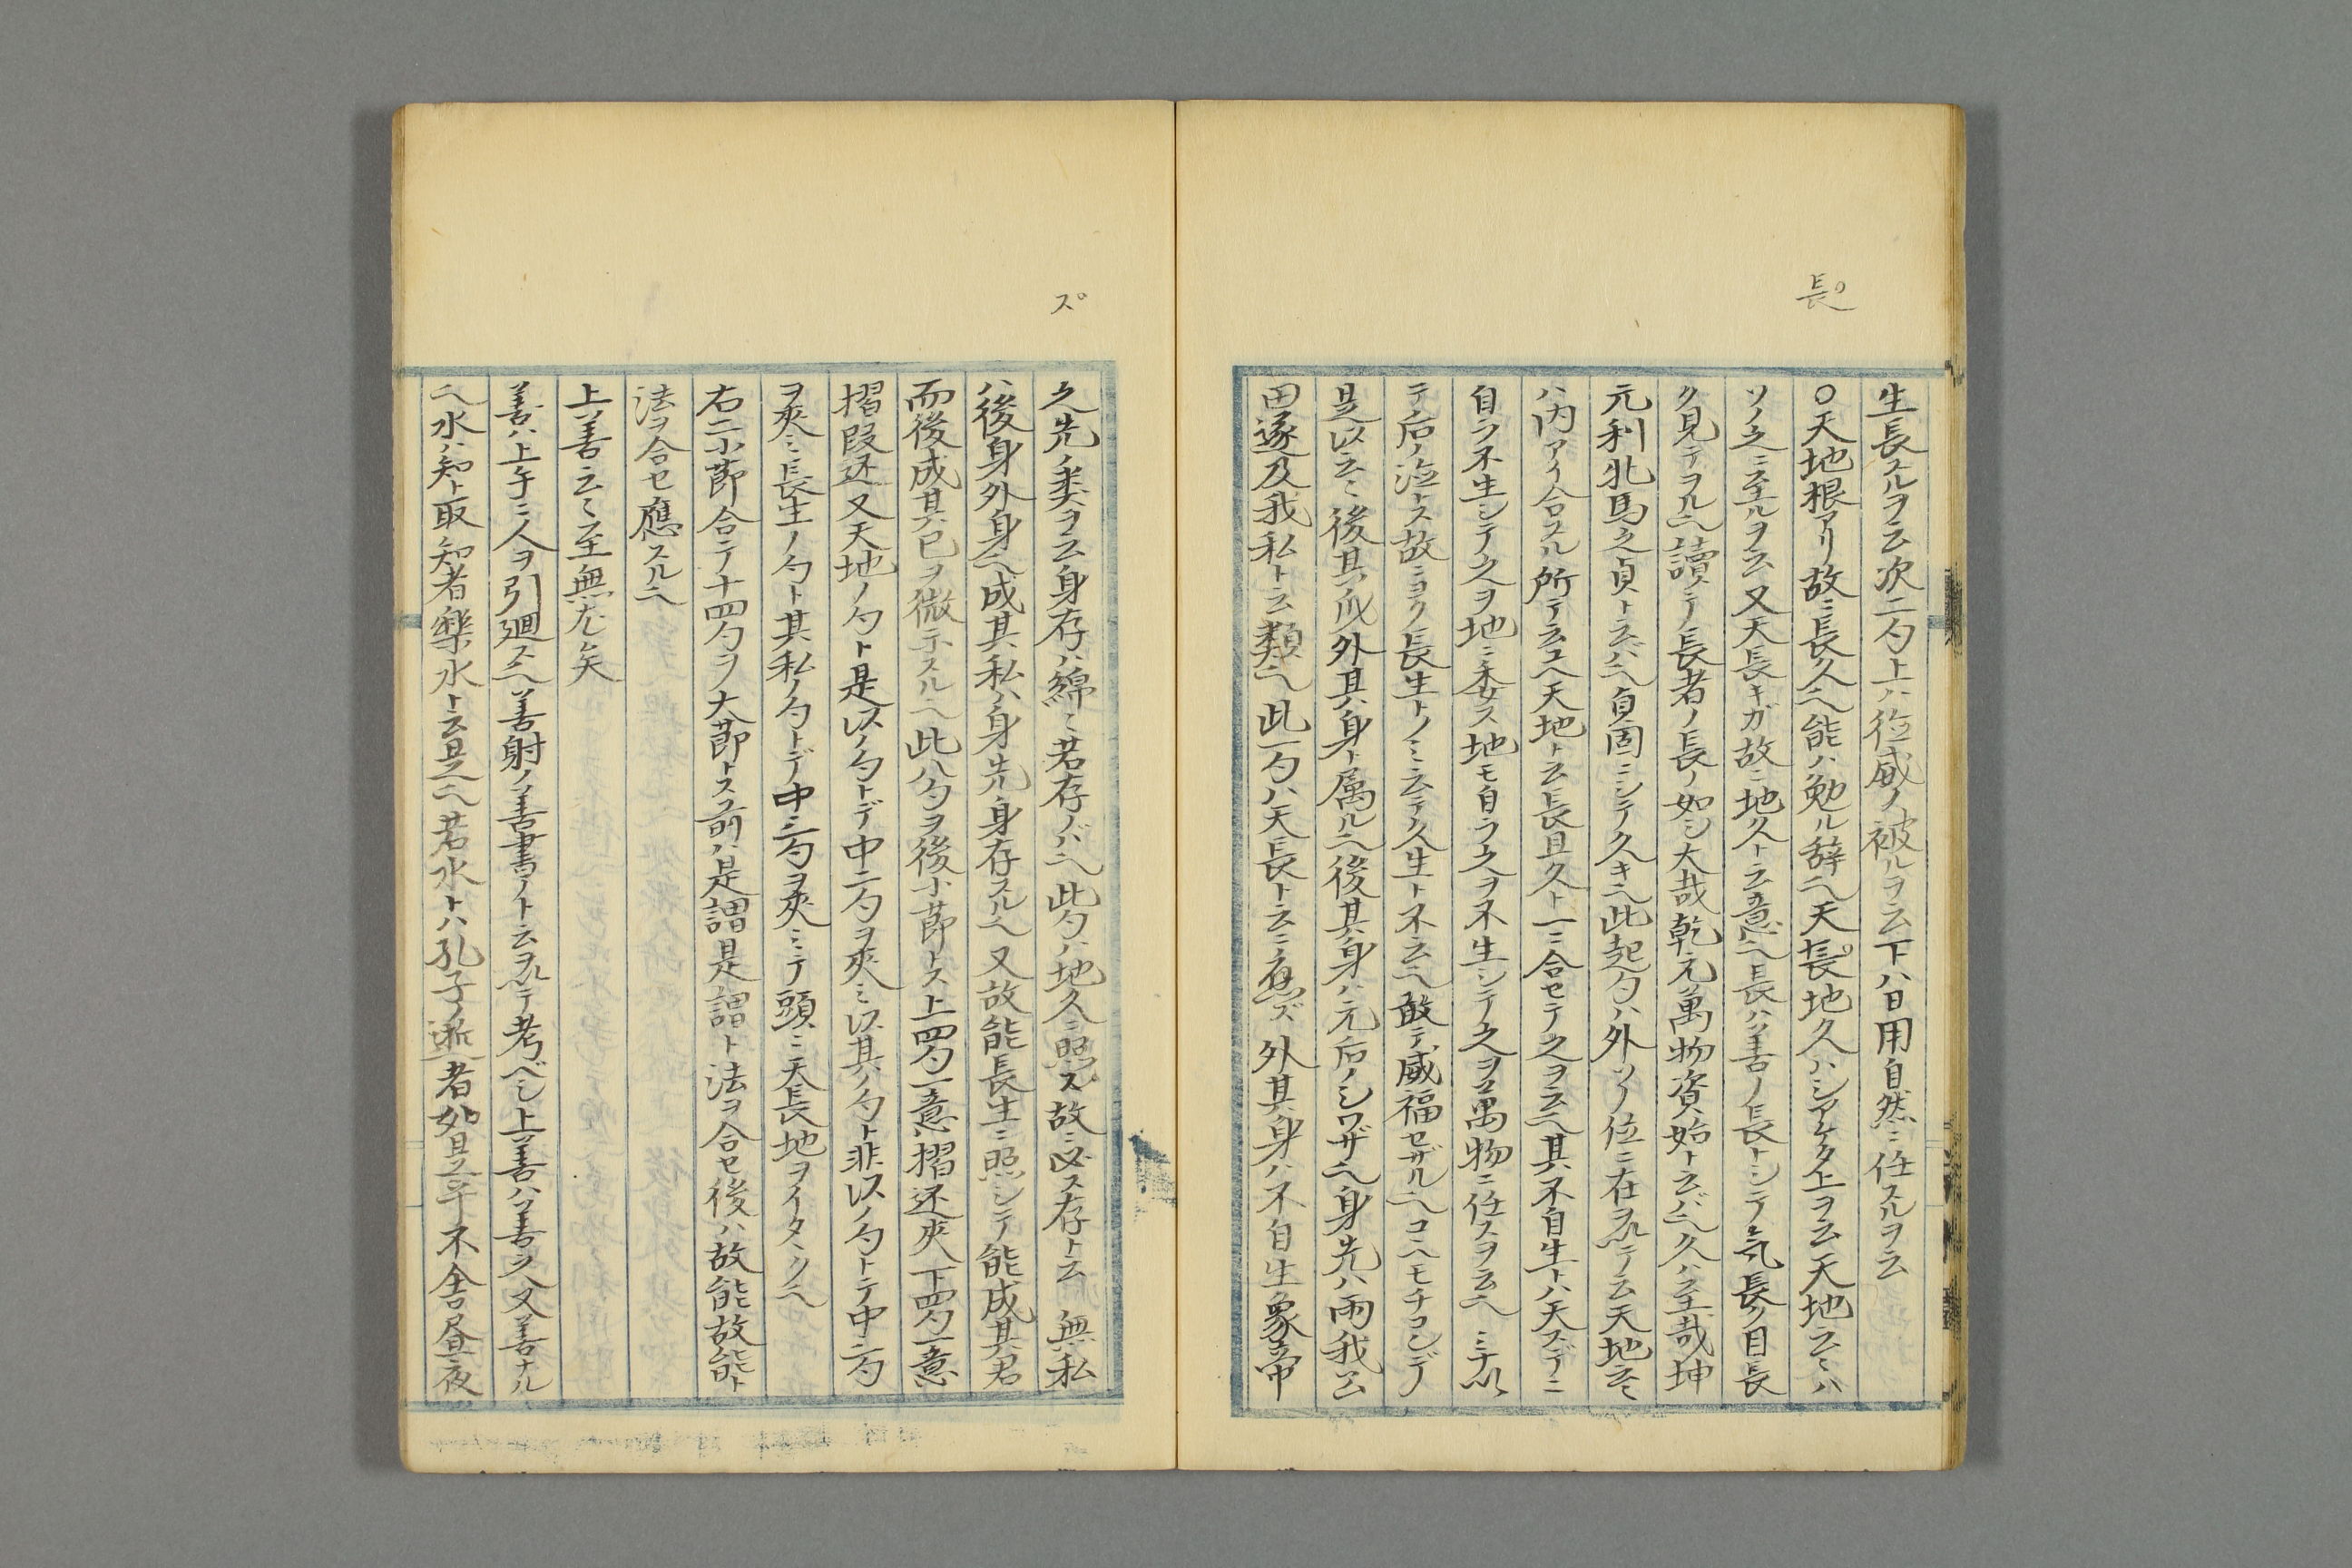 長
生長スルヲ云次二勺上ハ位威ノ被ルヲ云下ハ日用自然ニ任スルヲ云
○天地根アリ故ニ長久ヘ能ハ勉ル辞ヘ天長地久ハシアケタ上ヲ云天地云〻ハ
ソノ之ニ至ルヲ云又天長キガ故ニ地久ト云意ヘ長ハ善ノ長トシテ気長ク目長
ク見テヲルヘ讀テ長者ノ長ノ如シ大哉乾元萬物資始ト云バヘ久ハ至哉坤
元利牝馬之貞ト云バヘ貞固ニシテ久キヘ此起勺ハ外ソノ位ニ在ヲルテ云天地云〻
ハ内アイ合スル所テ云ユヘ天地ト云長且久ト一ニ合セテ之ヲ云ヘ其不自生トハ天スデニ
自ラ不生シテ之ヲ地ニ委ス地モ自ラ之ヲ不生シテ之ヲ萬物ニ任スヲ云ヘ
テ后ノ治トス故ニヨク長生トノミ云テ久生ト不云ヘ敢テ威福セザルヘコヘモチコンデ
是以云〻後其外其身ト属ルヘ後其身ハ元后ノシワザヘ身先ハ雨我公
田遂及我私ト云類ヘ此一勺ハ天長ト云ニ應ズ外其身ハ不自生象帝
ス
之先ノ類ヲ云身存ハ綿〻若存ノバヘ此勺ハ地久ニ照ス故ニ必ス存ト云 無私
ハ後身外身ヘ成其私ハ身先身存スルヘ又故能長生ニ照シテ能成其君
而後成其已ヲ微示スルヘ此八勺ヲ後小莭トス上四勺一意摺还夾下四勺一意
摺叚还又天地ノ勺ト是以ノ勺トデ中二勺ヲ夾ミ以其ノ勺ト非以ノ勺トテ中二勺
ヲ夾ミ長生ノ勺ト其私ノ勺トデ中三勺ヲ夾ミテ頭ニ天長地ヲイタヽクヘ
右二小莭合テ十四勺ヲ大莭トス前ハ是謂是謂ト法ヲ合セ後ハ故能故能ト
法ヲ合セ應スルヘ
上善云〻至無尤矣
善ハ上手ニ人ヲ引廻スヘ善射ノ善書ノト云ヲルテ考ベシ上善ハソ善ク入又善ナル
ヘ水ハ知ト取知者樂水ト云是ヘ若水トハ孔子逝者如是乎不舎昼夜